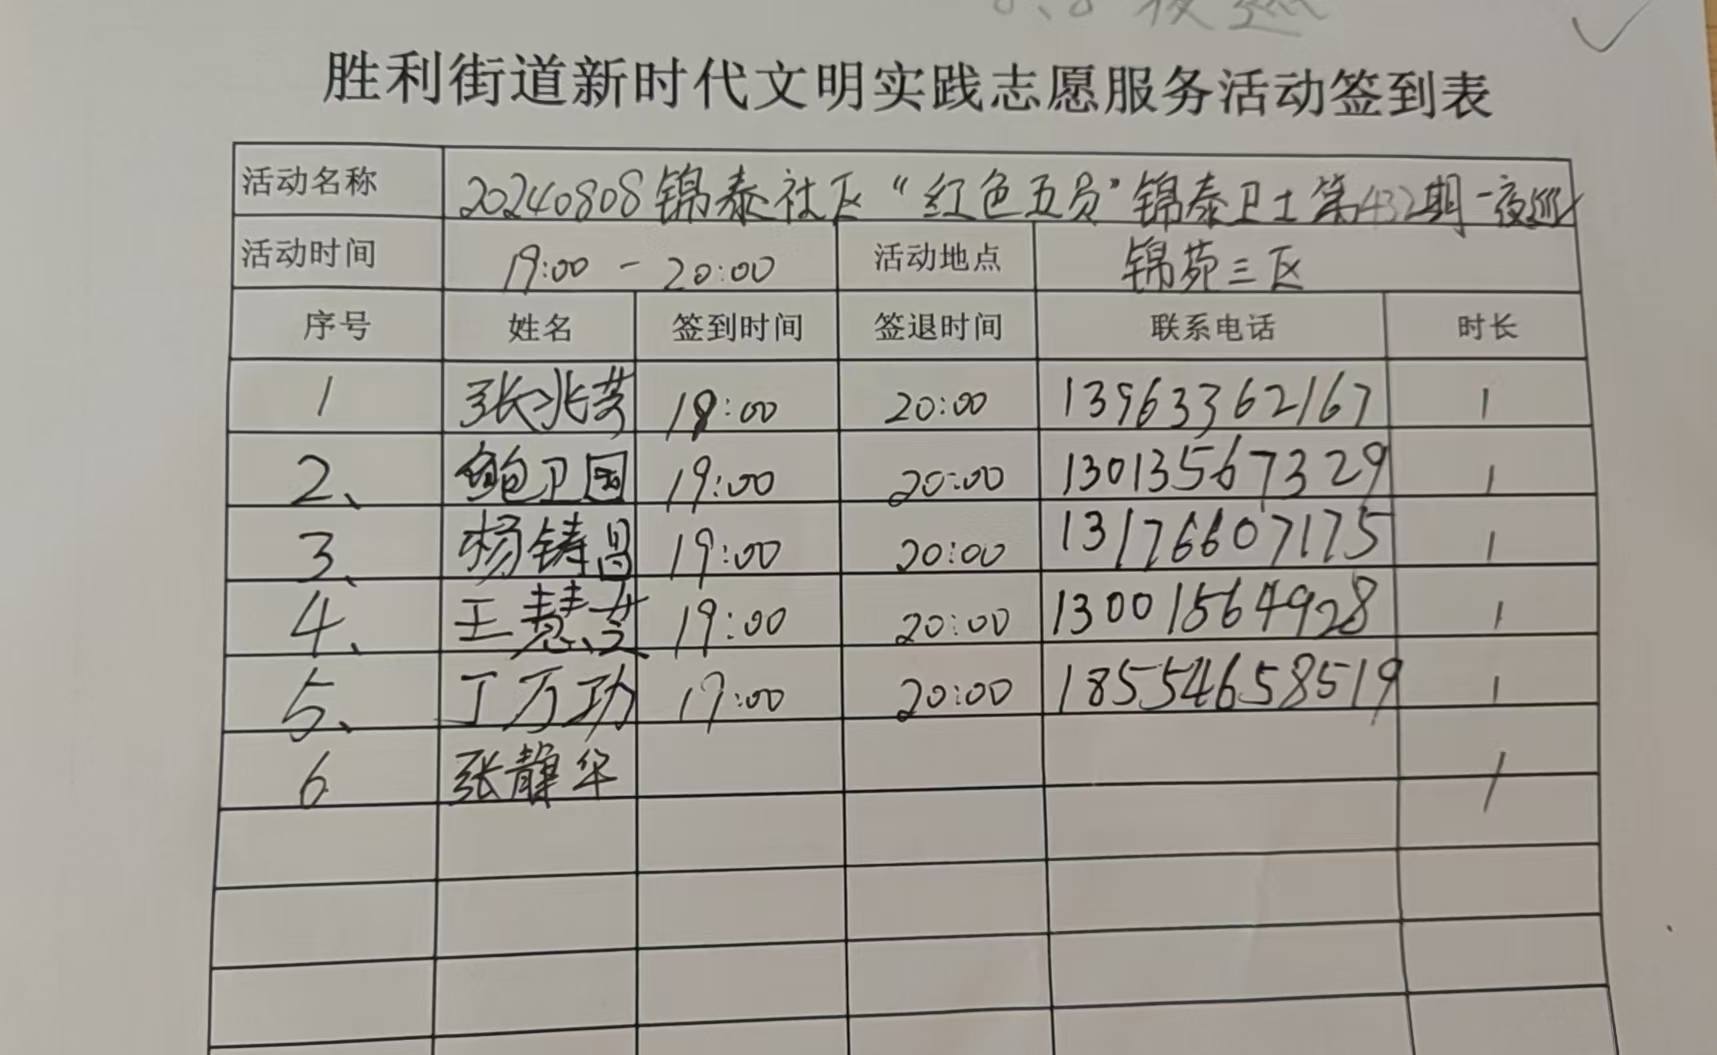 8.8夜巡
胜利街道新时代文明实践志愿服务活动签到表
活动名称 20240808锦泰社区“红色五员”锦泰卫士第432期-夜巡
活动时间 19:00 - 20:00 活动地点 锦苑三区
序号 姓名 签到时间 签退时间 联系电话 时长
1 张兆芬 19:00 20:00 13963362167 1
2、 鲍卫国 19:00 20:00 13013567329 1
3、 杨铸昌 19:00 20:00 13176607175 1
4、 王慧芝 19:00 20:00 13001564928 1
5、 丁万功 19:00 20:00 18554658519 1
6 张静华 1